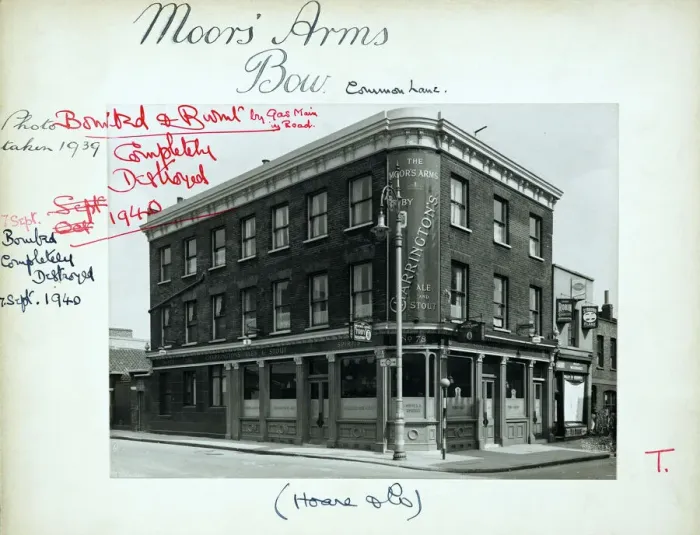 Moors' Arms
Bow.
Common Lane.
Photo
taken 1939
Bombed & Burnt by Gas Main
in Road.
Completely
Destroyed
Sept
Oct 1940
7 Sept.
Bombed
Completely
Destroyed
7 Sept. 1940
THE
MOOR'S ARMS
BY
CHARRINGTON'S
ALE
AND
STOUT
NO 78
TOBY
T.
(Hoare & Co)